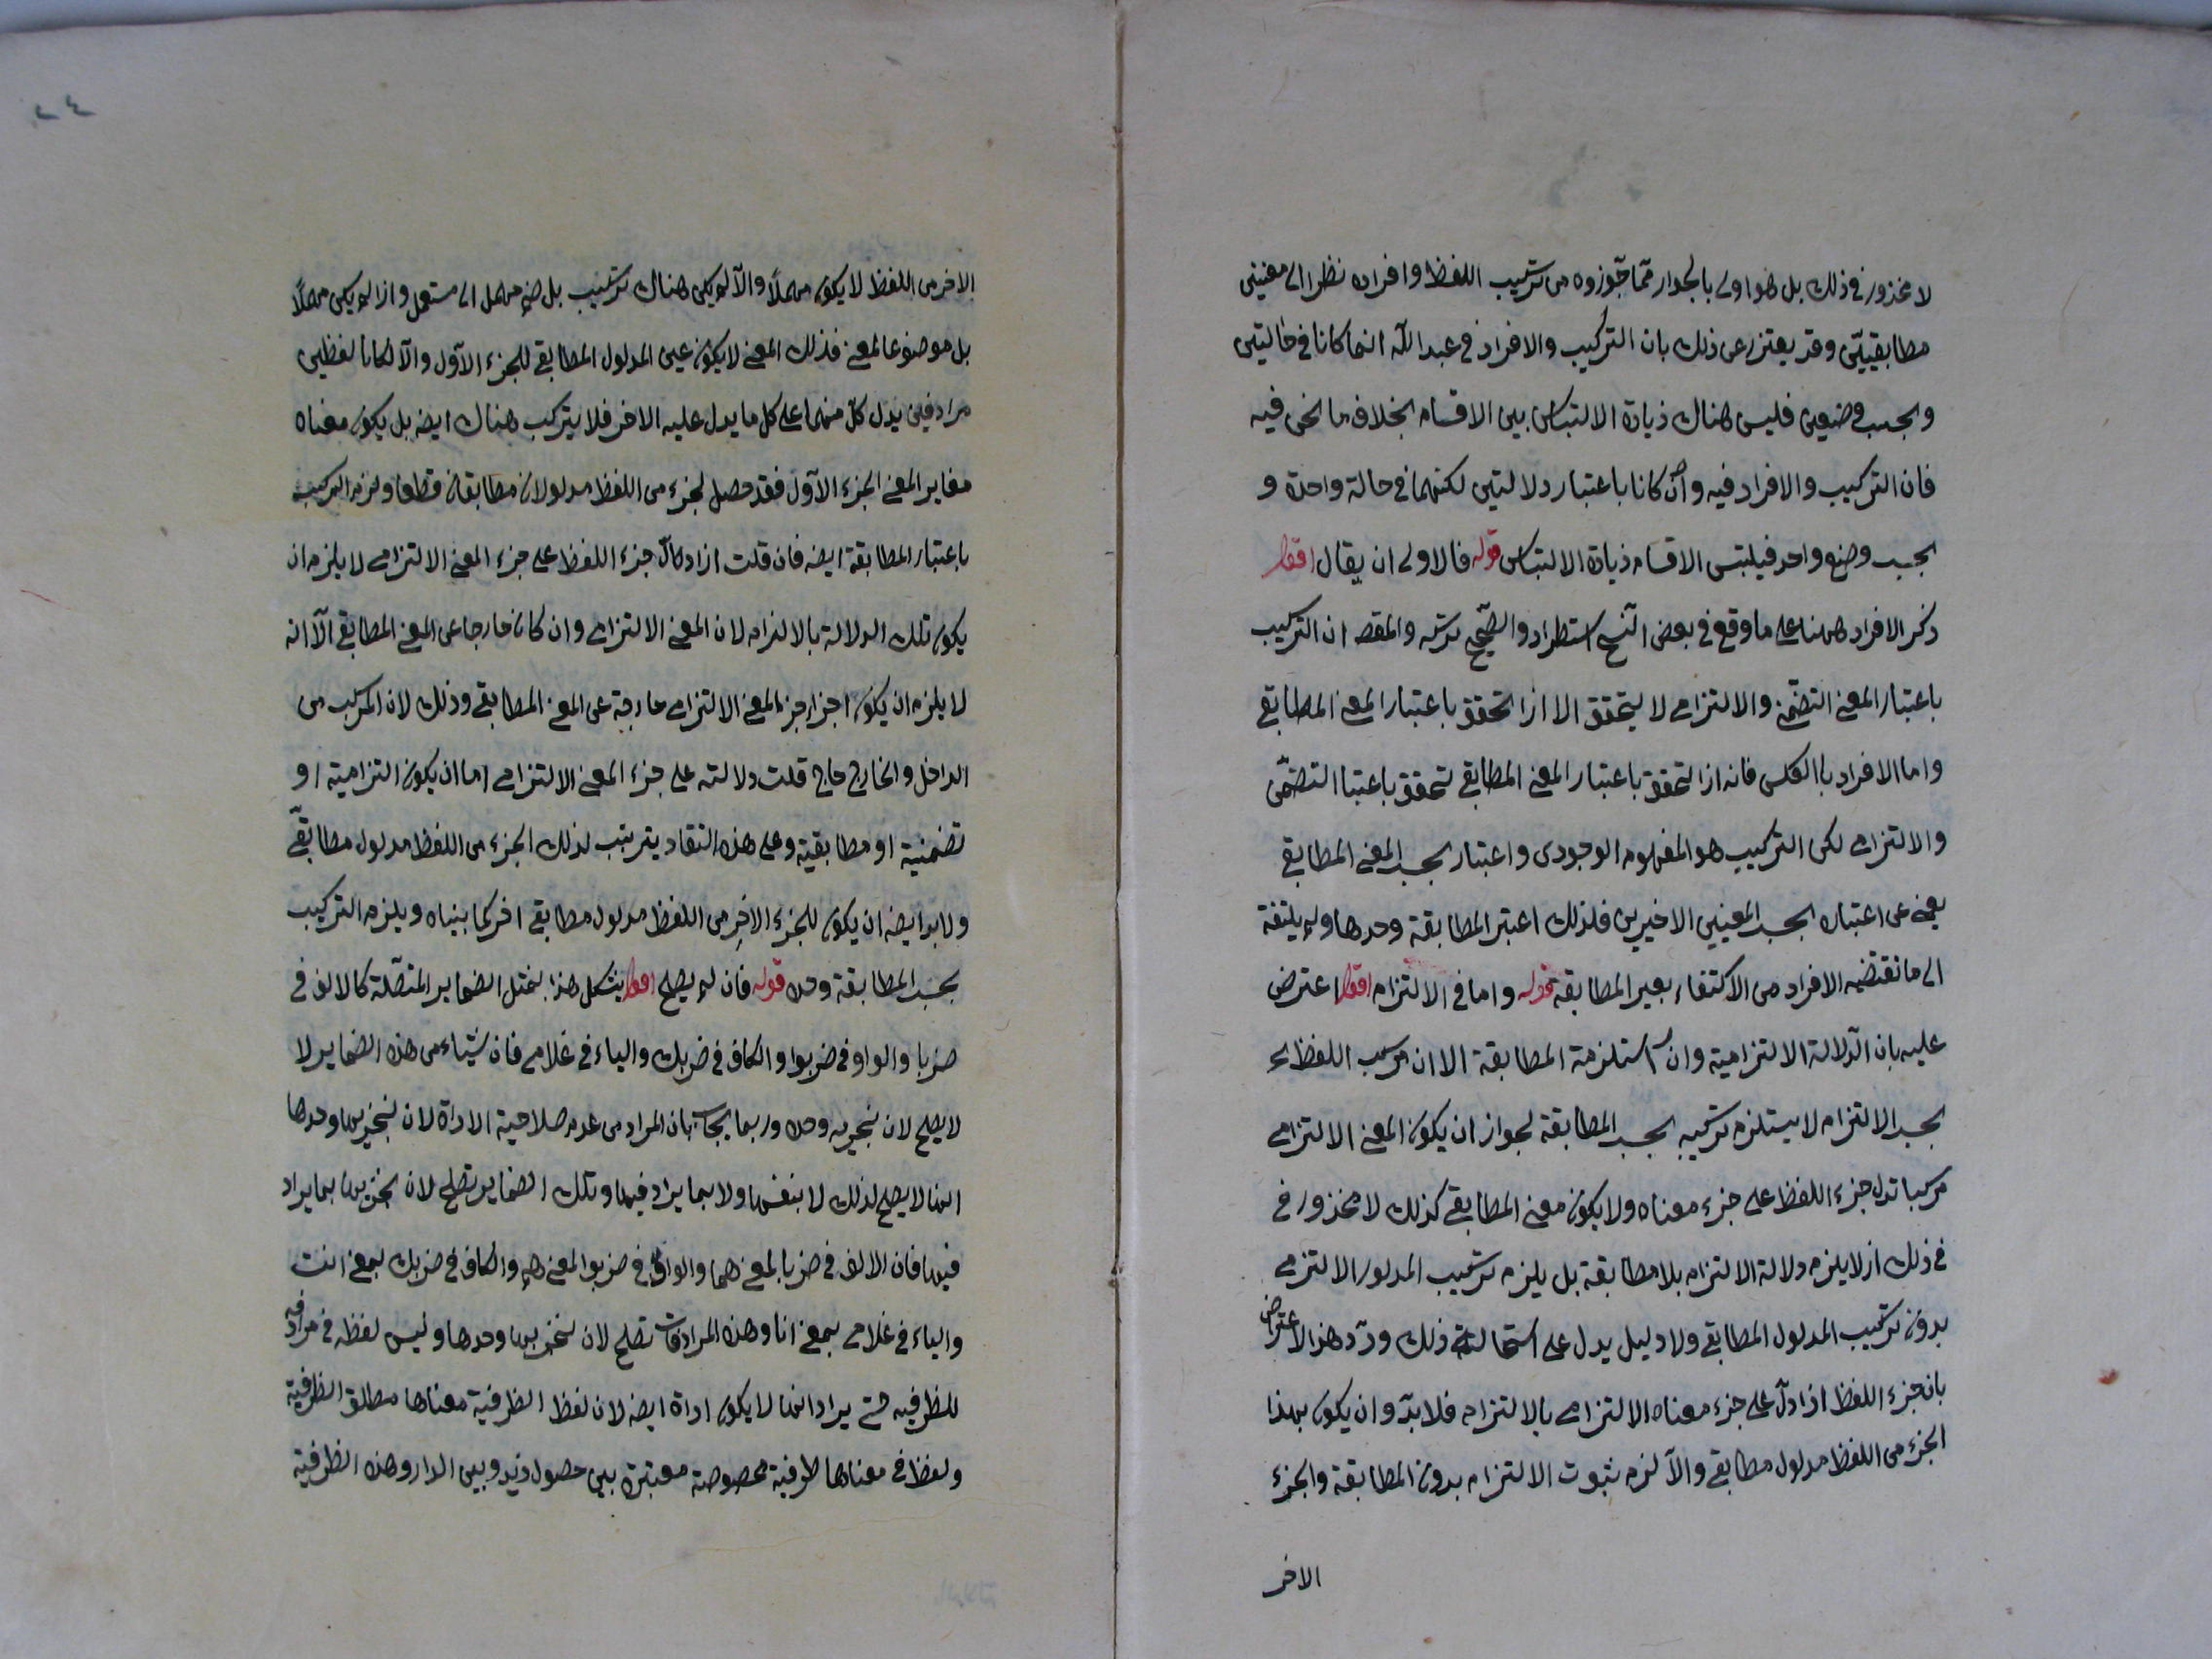 لا محذور في ذلك بل هو اولى بالجواز مما جوزوه من تركيب اللفظ وافراده نظرا الى معنيين
مطابقيين وقد يعتذر عن ذلك بان التركيب والافراد في عبد الله انما كانا في حالتين
وبحسب وضعين فليس هناك زيادة الالتباس بين الاقسام بخلاف ما نحن فيه
فان التركيب والافراد فيه وان كانا باعتبار دلالتين لكنهما في حالة واحدة و
بحسب وضع واحد فيلتبس الاقسام زيادة الالتباس قوله فالاولى ان يقال اقول
ذكر الافراد ههنا على ما وقع في بعض النسخ استطراد والصحيح تركه والمقصه ان التركيب
باعتبار المعنى التضمني والالتزامي لا يتحقق الا اذا تحقق باعتبار المعنى المطابقي
واما الافراد بالعكس فانه اذا تحقق باعتبار المعنى المطابقي تحقق باعتبا التضمني
والالتزامي لكن التركيب هو المفهوم الوجودي واعتباره بحسب المعنى المطابقي
يغني عن اعتباره بحسب المعنيين الاخيرين فلذلك اعتبر المطابقة وحدها ولم يلتفة
الى ما نقتضيه الافراد من الاكتفاء بغير المطابقة قوله واما في الالتزام اقول اعترض
عليه بان الدلالة الالتزامية وان استلزمة المطابقة الا ان تركيب اللفظ
بحسب الالتزام لا يستلزم تركيبه بحسب المطابقة لجواز ان يكون المعنى الالتزامي
مركبا تدل جزء اللفظ على جزء معناه ولا يكون معنى المطابقي كذلك لا محذور في
في ذلك اذ لا يلزم دلالة الالتزام بلا مطابقة بل يلزم تركيب المدلول الالتزمي
بدون تركيب المدلول المطابقي ولا دليل يدل على استحالته ذلك ورد هذا الاعتراض
بان جزء اللفظ اذا دل على جزء معناه الالتزامي بالالتزام فلا بد وان يكون بهذا
الجزء من اللفظ مدلول مطابقي والا لزم ثبوت الالتزام بدون المطابقة والجزء
الاخر
٢٤
الاخر من اللفظ لا يكون مهملاً والا لم يكن هناك تركيب بل ضم مهمل الى مستعمل واذا لم يكن مهملاً
بل موضوعا لمعنى فذلك المعنى لا يكون عين المدلول المطابقي للجزء الاول والا لكانا لفظين
مرادفين يدل كل منهما على كل ما يدل عليه الاخر فلا يتركب هناك ايضه بل يكون معناه
مغاير المعنى الجزء الاول فقد حصل لجزء من اللفظ مدلولان مطابقان قطعا ولزم التركيب
باعتبار المطابقة ايضه فان قلت اذا دال جزء اللفظ على جزء المعنى الالتزامي لا يلزم ان
يكون تلك الدلالة بالالتزام لان المعنى الالتزامي وان كان خارجا عن المعنى المطابقي الا انه
لا يلزم ان يكون اجزاء جزء المعنى الالتزامي خارجة عن المعنى المطابقي وذلك لان المركب من
الداخل والخارج خارج قلت دلالته على جزء المعنى الالتزامي اما ان يكون التزامية او
تضمنية او مطابقية وعلى هذه التقاد يترتب لذلك الجزء من اللفظ مدلول مطابقي
ولابد ايضه ان يكون للجزء الاخر من اللفظ مدلول مطابقي اخر كما بيناه ويلزم التركيب
بحسب المطابقة وحده قوله فان لم يصلح اقول يشكل هذا بمثل الضماير المتصلة كالالف في
ضربا والواو في ضربوا والكاف في ضربك والياء في غلامي فان شيئاء من هذه الضماير لا
لا يصلح لان يخبر به وحده وربما يجاب بان المراد من عدم صلاحية الاداة لان يخبر بها وحدها
انها لا يصلح لذلك لا بنفسها ولا بما يرادفيها وتلك الضماير تصلح لان يخبر بها بما يراد
فيها فان الالف في ضربا بمعنى هما والواو في ضربوا بمعنى هم والكاف في ضربك بمعنى انت
والياء في غلامي بمعنى انا وهذه المرادفات تصلح لان يخبر بها وحدها وليس لفظه في مرادفه
للظرفيه حتى يراد انها لا يكون اداة ايضه لان لفظ الظرفية معناها مطلق الظرفية
ولفظ في معناها ظرفية مخصوصة معتبرة بين حصول زيد وبين الدار وهذه الظرفية